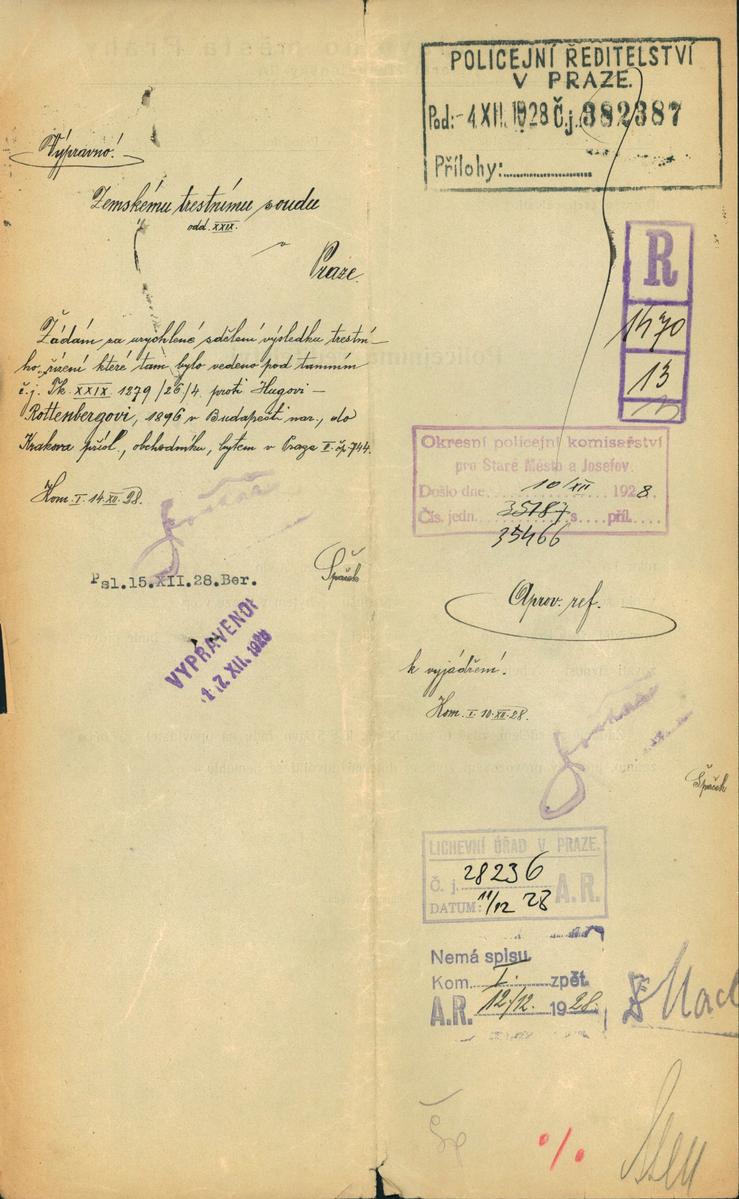 Výpravno!
Zemskému trestnímu soudu
odd. XXIX.
v
Praze.
Žádám za urychlené sdělení výsledku trestní-
ho řízení které tam bylo vedeno pod tamním
č.j. Tk XXIX 1279/26/4. proti Hugovi
Rottenbergovi, 1896 v Budapešti nar., do
Krakova přísl., obchodníku, bytem v Praze V. čp. 744.
Kom. I. 14.XII.28.
Špaček
Psl.15.XII.28.Ber.
VYPRAVENO!
17. XII. 1928
POLICEJNÍ ŘEDITELSTVÍ
V PRAZE.
Pod: -4.XII.1928 Č.j. 382387
Přílohy:
R
1470
13
Okresní policejní komisařství
pro Staré Město a Josefov.
Došlo dne 10/XII 1928
Čís. jedn. 35187 s. příl.
35466
Aprov. ref.
k vyjádření.
Kom. I. 10.XII.28.
Špaček
LICHEVNÍ ÚŘAD V PRAZE.
Č. j. 28236
DATUM: 11/12 28 A.R.
Nemá spisu
Kom. I. zpět.
A.R. 12./12. 1928.
Šp
%